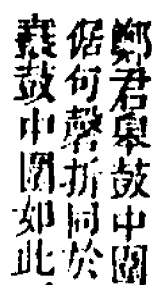 鄭君皋鼓中圍
倨句磬折同於
鼖鼓中圍如此